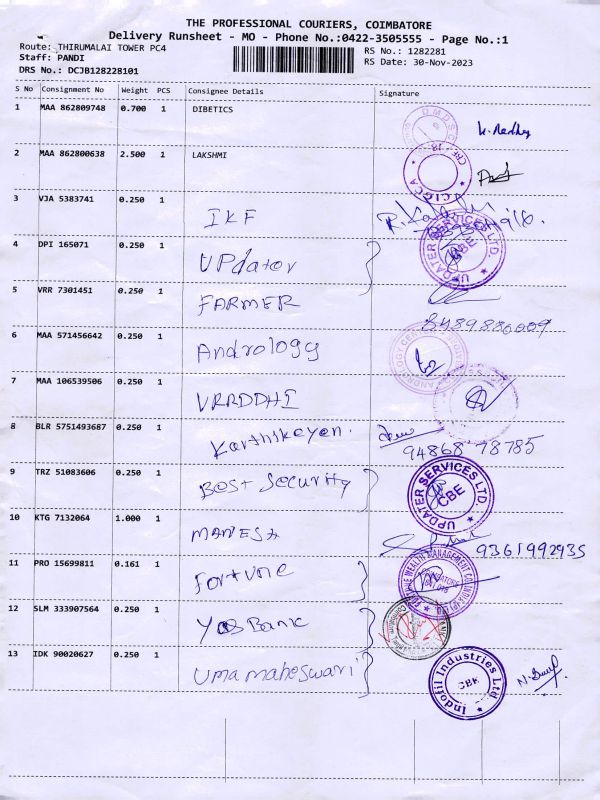 THE PROFESSIONAL COURIERS, COIMBATORE
Delivery Runsheet - MO - Phone No.:0422-3505555 - Page No.:1
Route: THIRUMALAI TOWER PC4 RS No.: 1282281
Staff: PANDI RS Date: 30-Nov-2023
DRS No.: DCJB128228101
S No Consignment No Weight PCS Consignee Details Signature
1 MAA 862809748 0.700 1 DIBETICS
2 MAA 862800638 2.500 1 LAKSHMI
3 VJA 5383741 0.250 1 IKF
4 DPI 165071 0.250 1 UPdator
UPDATER SERVICES LTD. CBE
5 VRR 7301451 0.250 1 FARMER
8489880009
6 MAA 571456642 0.250 1 Andrology
7 MAA 106539506 0.250 1 VRRDDHI
8 BLR 5751493687 0.250 1 Karthikeyen.
94868 78785
9 TRZ 51083606 0.250 1 Best Security
UPDATER SERVICES LTD. CBE
10 KTG 7132064 1.000 1 MANESH
9361992935
11 PRO 15699811 0.161 1 Fortune
12 SLM 333907564 0.250 1 Yes Bank
13 IDK 90020627 0.250 1 Uma maheswari
Indofil Industries Ltd CBK